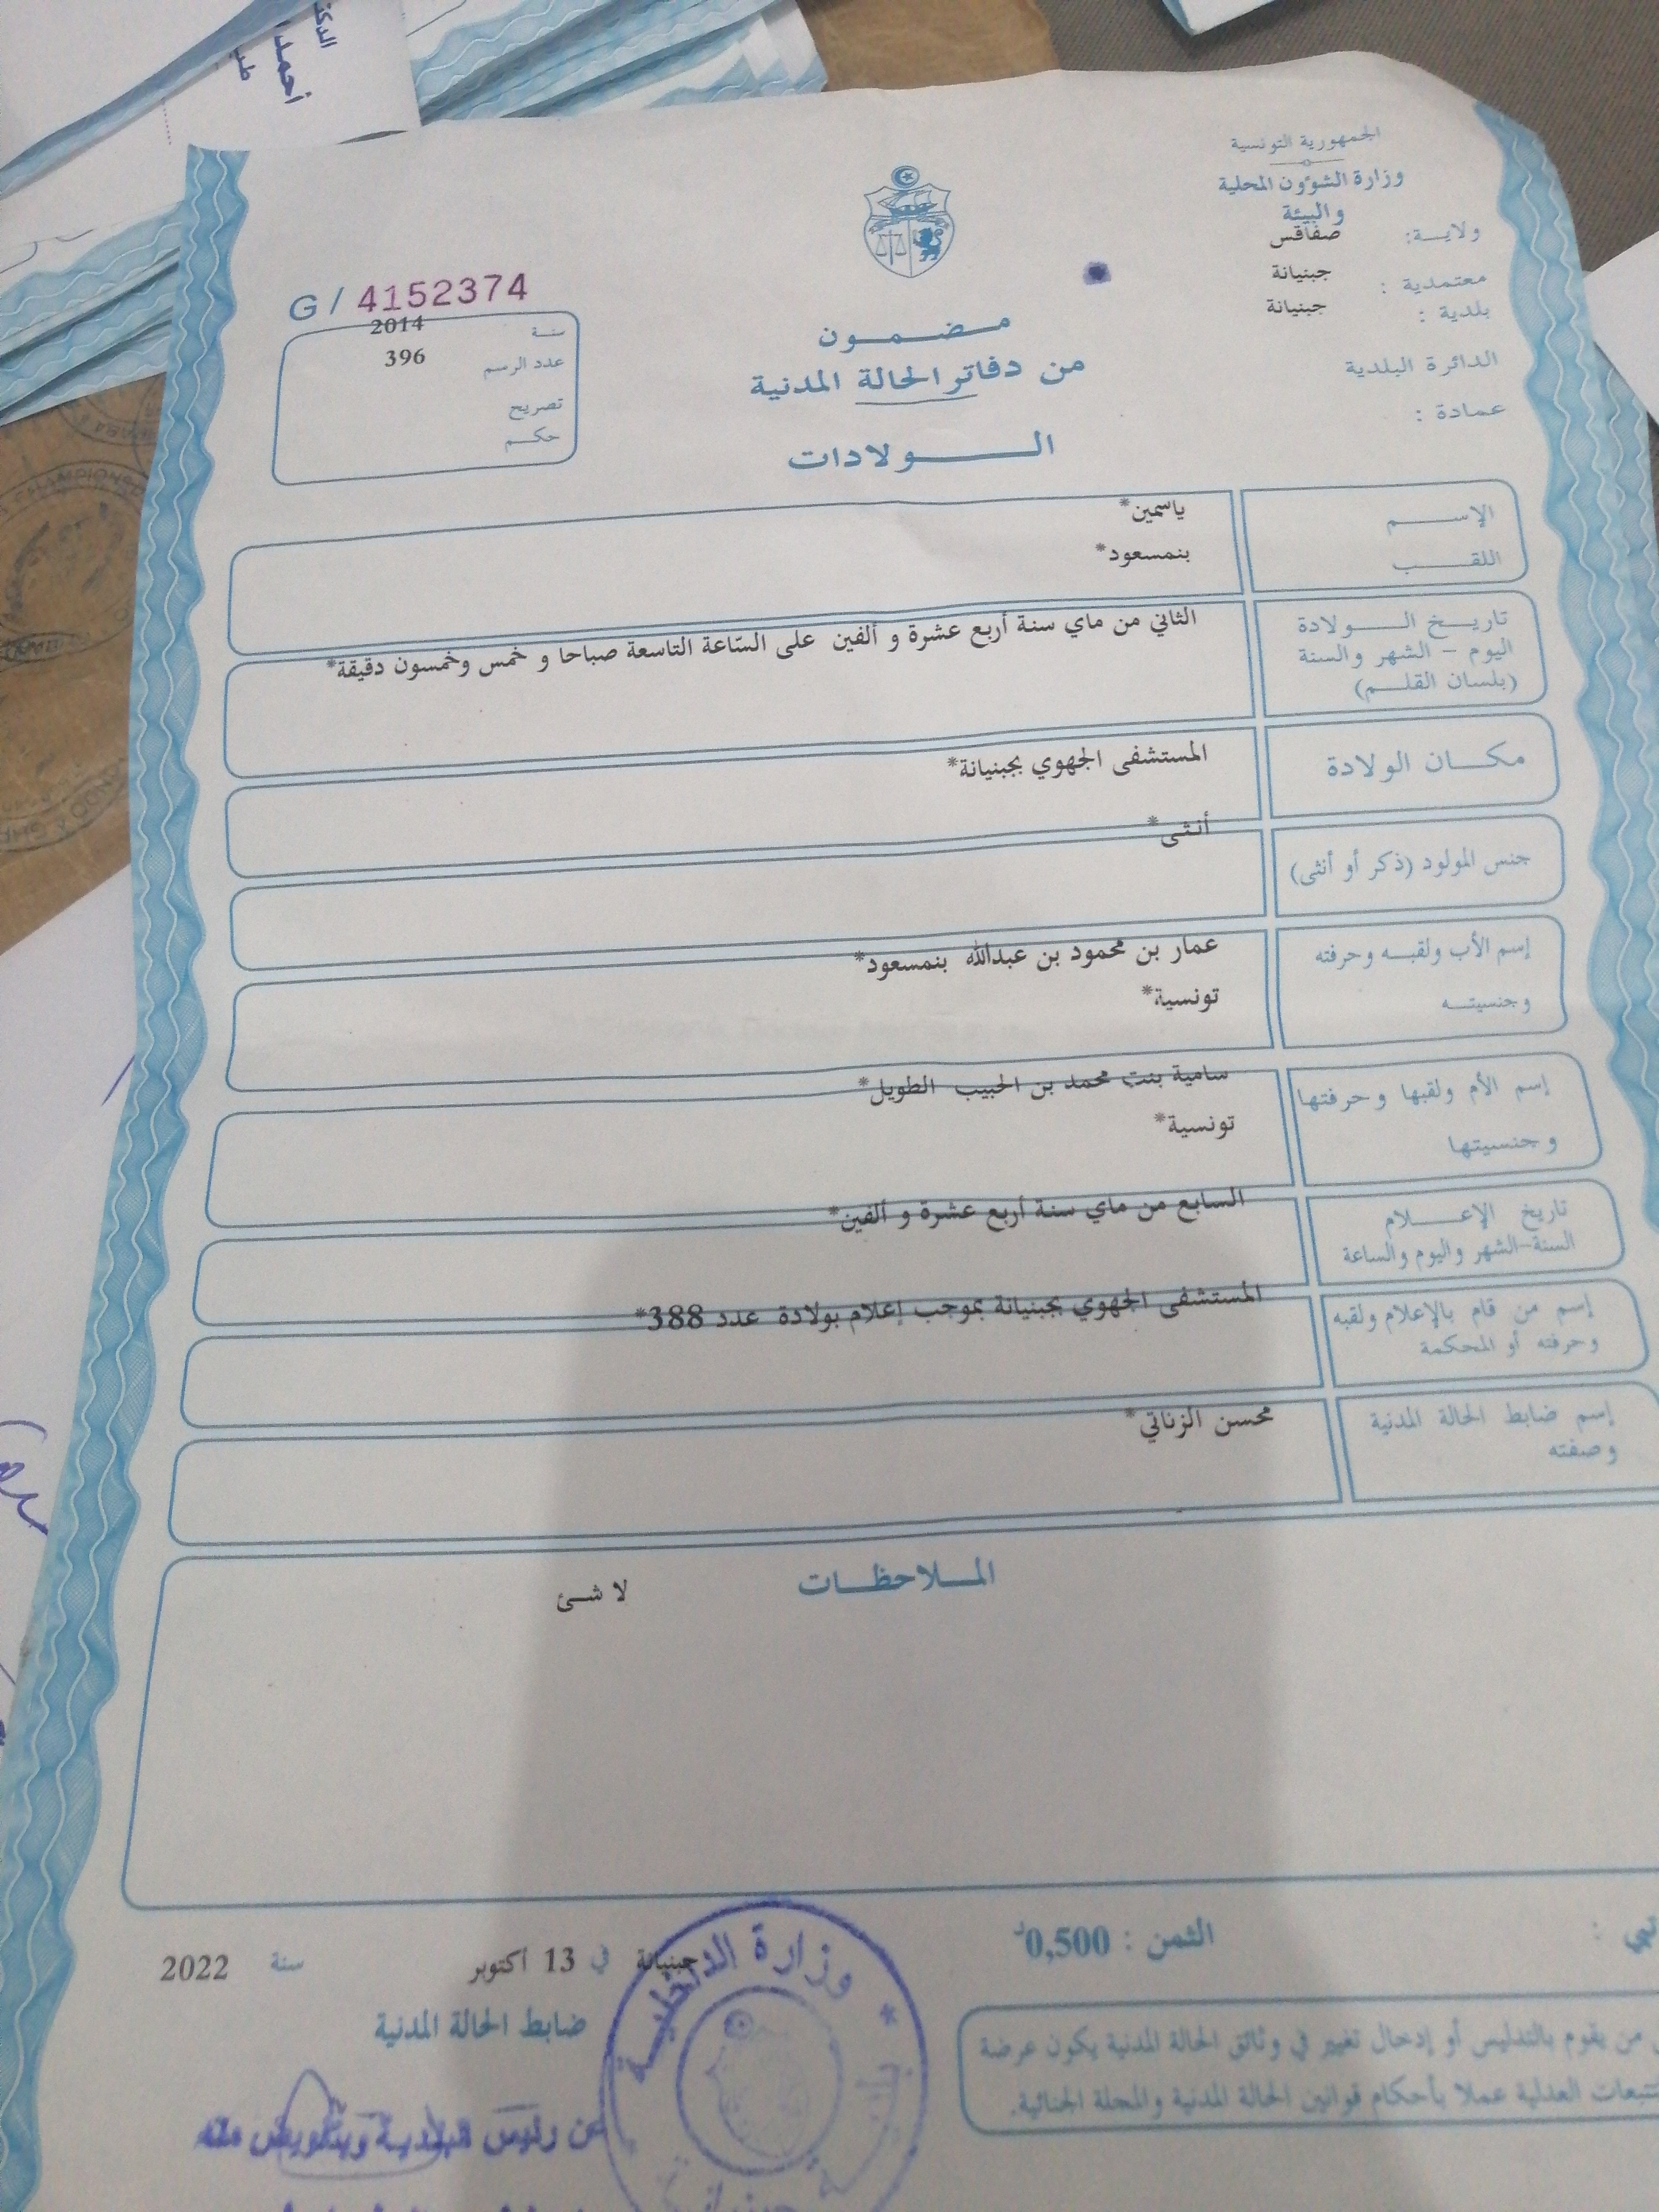 الجمهورية التونسية
وزارة الشؤون المحلية
والبيئة
ولاية: صفاقس
معتمدية : جبنيانة
بلدية : جبنيانة
الدائرة البلدية
عمادة :
G / 4152374
سنة 2014
عدد الرسم 396
تصريح
حكم
مضمون
من دفاتر الحالة المدنية
الولادات
الإسم ياسمين*
اللقب بنمسعود*
تاريخ الولادة
اليوم - الشهر والسنة
(بلسان القلم)
الثاني من ماي سنة أربع عشرة و ألفين على السّاعة التاسعة صباحا و خمس وخمسون دقيقة*
مكان الولادة المستشفى الجهوي بجبنيانة*
جنس المولود (ذكر أو أنثى) أنثى*
إسم الأب ولقبه وحرفته عمار بن محمود بن عبدالله بنمسعود*
وجنسيته تونسية*
إسم الأم ولقبها وحرفتها سامية بنت محمد بن الحبيب الطويل*
وجنسيتها تونسية*
تاريخ الإعلام السابع من ماي سنة أربع عشرة و ألفين*
السنة-الشهر واليوم والساعة
إسم من قام بالإعلام ولقبه المستشفى الجهوي بجبنيانة بموجب إعلام بولادة عدد 388*
وحرفته أو المحكمة
إسم ضابط الحالة المدنية محسن الزناتي*
وصفته
الملاحظات
لا شئ
الثمن : 0,500د
جبنيانة في 13 أكتوبر سنة 2022
ضابط الحالة المدنية
من يقوم بالتدليس أو إدخال تغيير في وثائق الحالة المدنية يكون عرضة
العدلية عملا بأحكام قوانين الحالة المدنية والمجلة الجنائية.
وزارة الداخلية
عن رئيس البلدية وبتفويض منه
أحمد